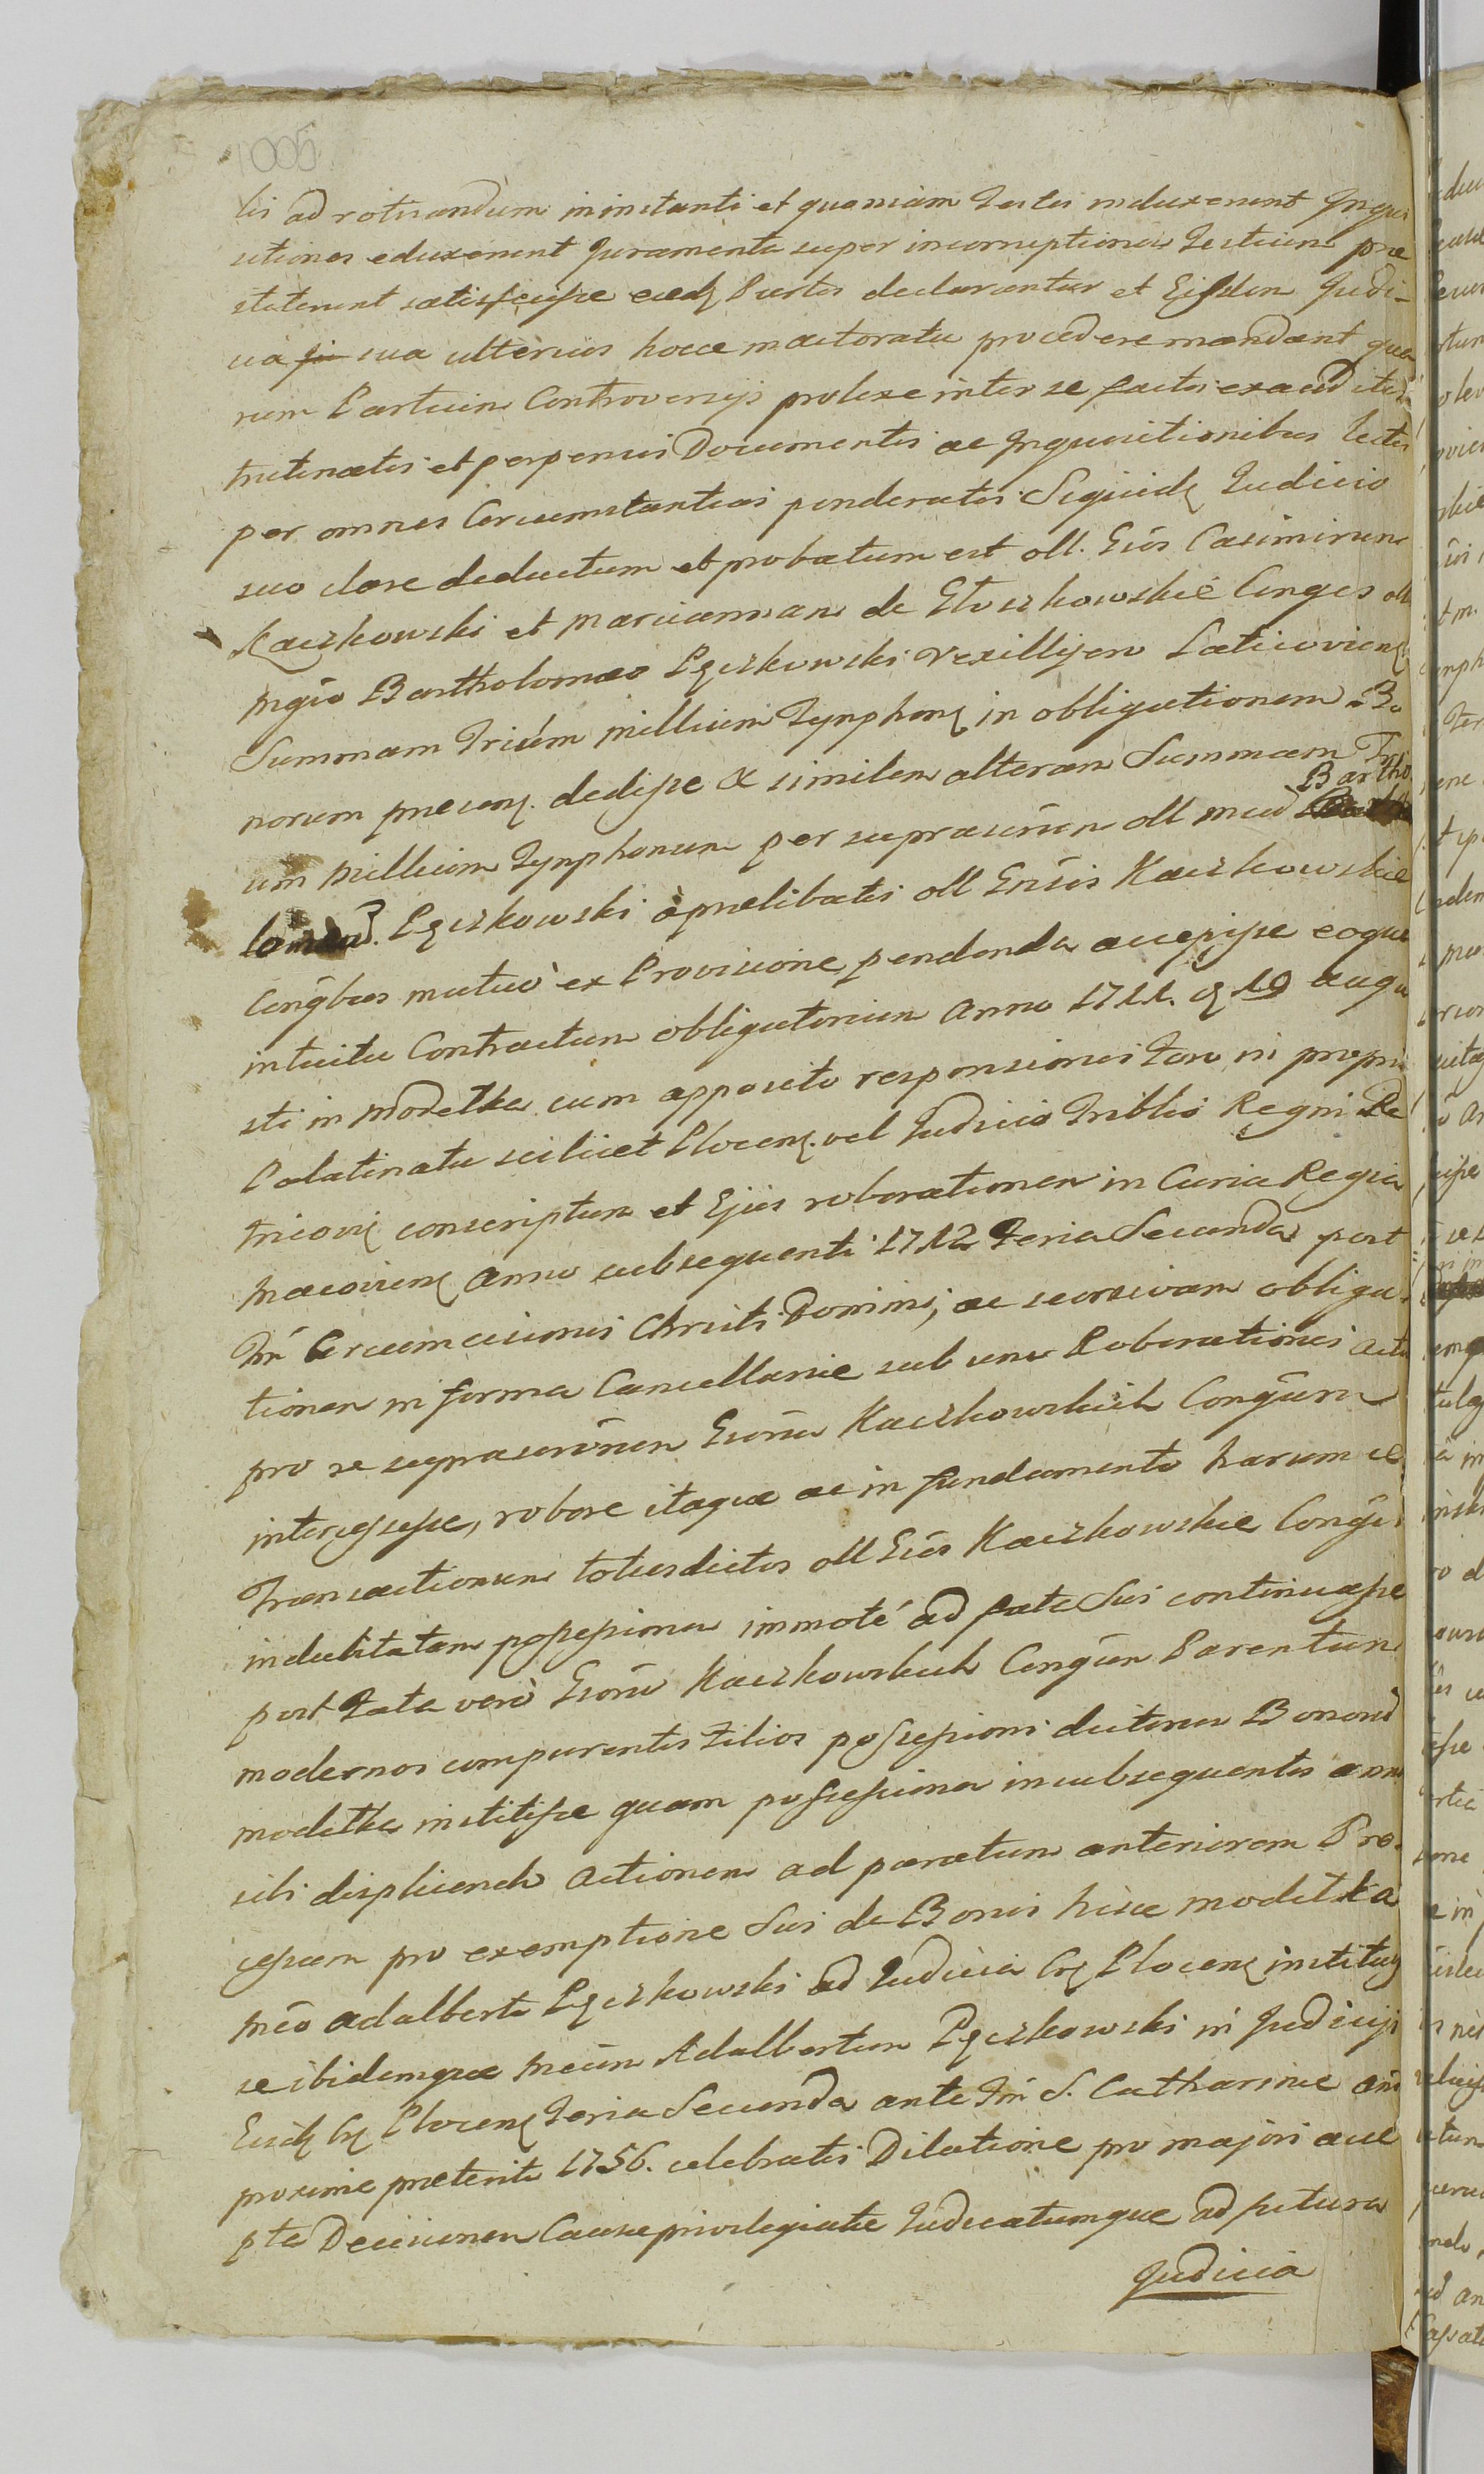 1005
tis ad rotuandum in instanti et quoniam Testes induxerunt Inqui
sitiones eduxerunt Juramenta super incorruptiones Testium præ
stiterunt satisfecisse eædę Partes declarantur et Eisdem Judi-
cia sua ulterius hocce in actoratu procedere mandant qua
rum Partium Controversijs prolixe inter se factis exauditis
trutinatis et perpensis Documentis ac Inquisitionibus lectis
per omnes Circumstantias ponderatis Siquidę Judicio
suo clare deductum et probatum est oll. Gsos Casimirum
Kaczkowski et Mariannam de Głoszkowskie Conges oll
Mgco Bartholomæo Pęczkowski Vexillifero Laticoviensę
Summam Trium millium Tynphonę in obligationem Bo
norum præsenę. dedisse & similem alteram Summam Tri
um Millium Tynphonum per suprascrium oll mcũ Bartho
lomæũ. Pęczkowski à prælibatis oll Gnsis Kaczkowskie
Congbus mutuò ex Provisione pendenda accepisse eoque
intuitu Contractum obligatorium Anno 1711. 19 augu
sti in Modełka cum apposito responsionis Foro in propri
Palatinatu scilicet Plocenę. vel Judicio Triblis Regni Pe
tricovię conscriptum et Ejus roborationem in Curia Regia
Macovienę Anno subsequenti 1712 Feria Secunda post
Fm Circumcisionis Christi Domini, ac recursivam obliga-
tionem in forma Cancellariæ sub uno Roborationis actu
pro se suprascrõrum Gsorũ Kaczkowskich Congum
intercessisse, robore itaque ac in fundamento harum ce
Transactionum totiesdictos oll Gsos Kaczkowskie Conges
indubitatam possessionem immoté ad fata Sui continuasse
post Fata verò Gsorũ Kaczkowskich Congum Parentum
modernos comparentes Filios possessioni dictorum Bonorũ
Modełka institisse quam possessionem in subsequentes annos
sibi displicendo Actionem ad paratum anteriorem Pro-
cessum pro exemptione Sui de Bonis hisce Modełka
Mco Adalberto Pęczkowski ad Judicia Crę Plocenę institus
se ibidemque Mcum Adalbertum Pęczkowski in Judicijs
Eisdę Crę Plocenę Feria Secunda ante Fm S. Catharinæ anni
proxime præteriti 1756. celebratis Dilatione pro majori acce
pta Decisionem Causæ privilegiatæ Judicatumque ad futura
Judicia